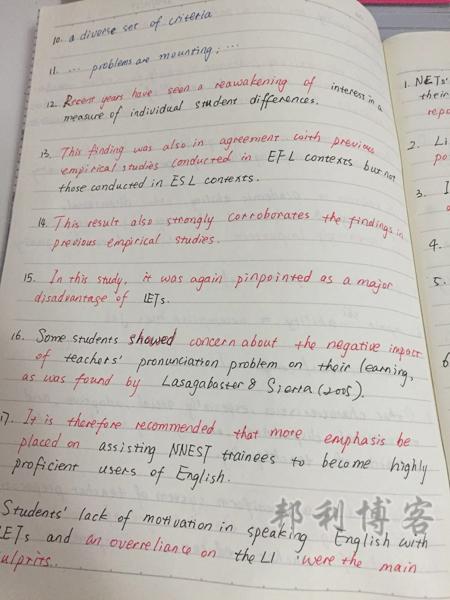 10. a diverse set of criteria
11. ... problems are mounting; ...
12. Recent years have seen a reawakening of interest in a
measure of individual student differences.
13. This finding was also in agreement with previous
empirical studies conducted in EFL contexts but not
those conducted in ESL contexts.
14. This result also strongly corroborates the findings in
previous empirical studies.
15. In this study, it was again pinpointed as a major
disadvantage of LETs.
16. Some students showed concern about the negative impact
of teachers' pronunciation problem on their learning,
as was found by Lasagabaster & Sierra (2005).
17. It is therefore recommended that more emphasis be
placed on assisting NNEST trainees to become highly
proficient users of English.
Students' lack of motivation in speaking English with
LETs and an overreliance on the L1 were the main
culprits.
邦利博客
1. NETs'
their
repo
2. Li
po
3. I
4.
5.
6